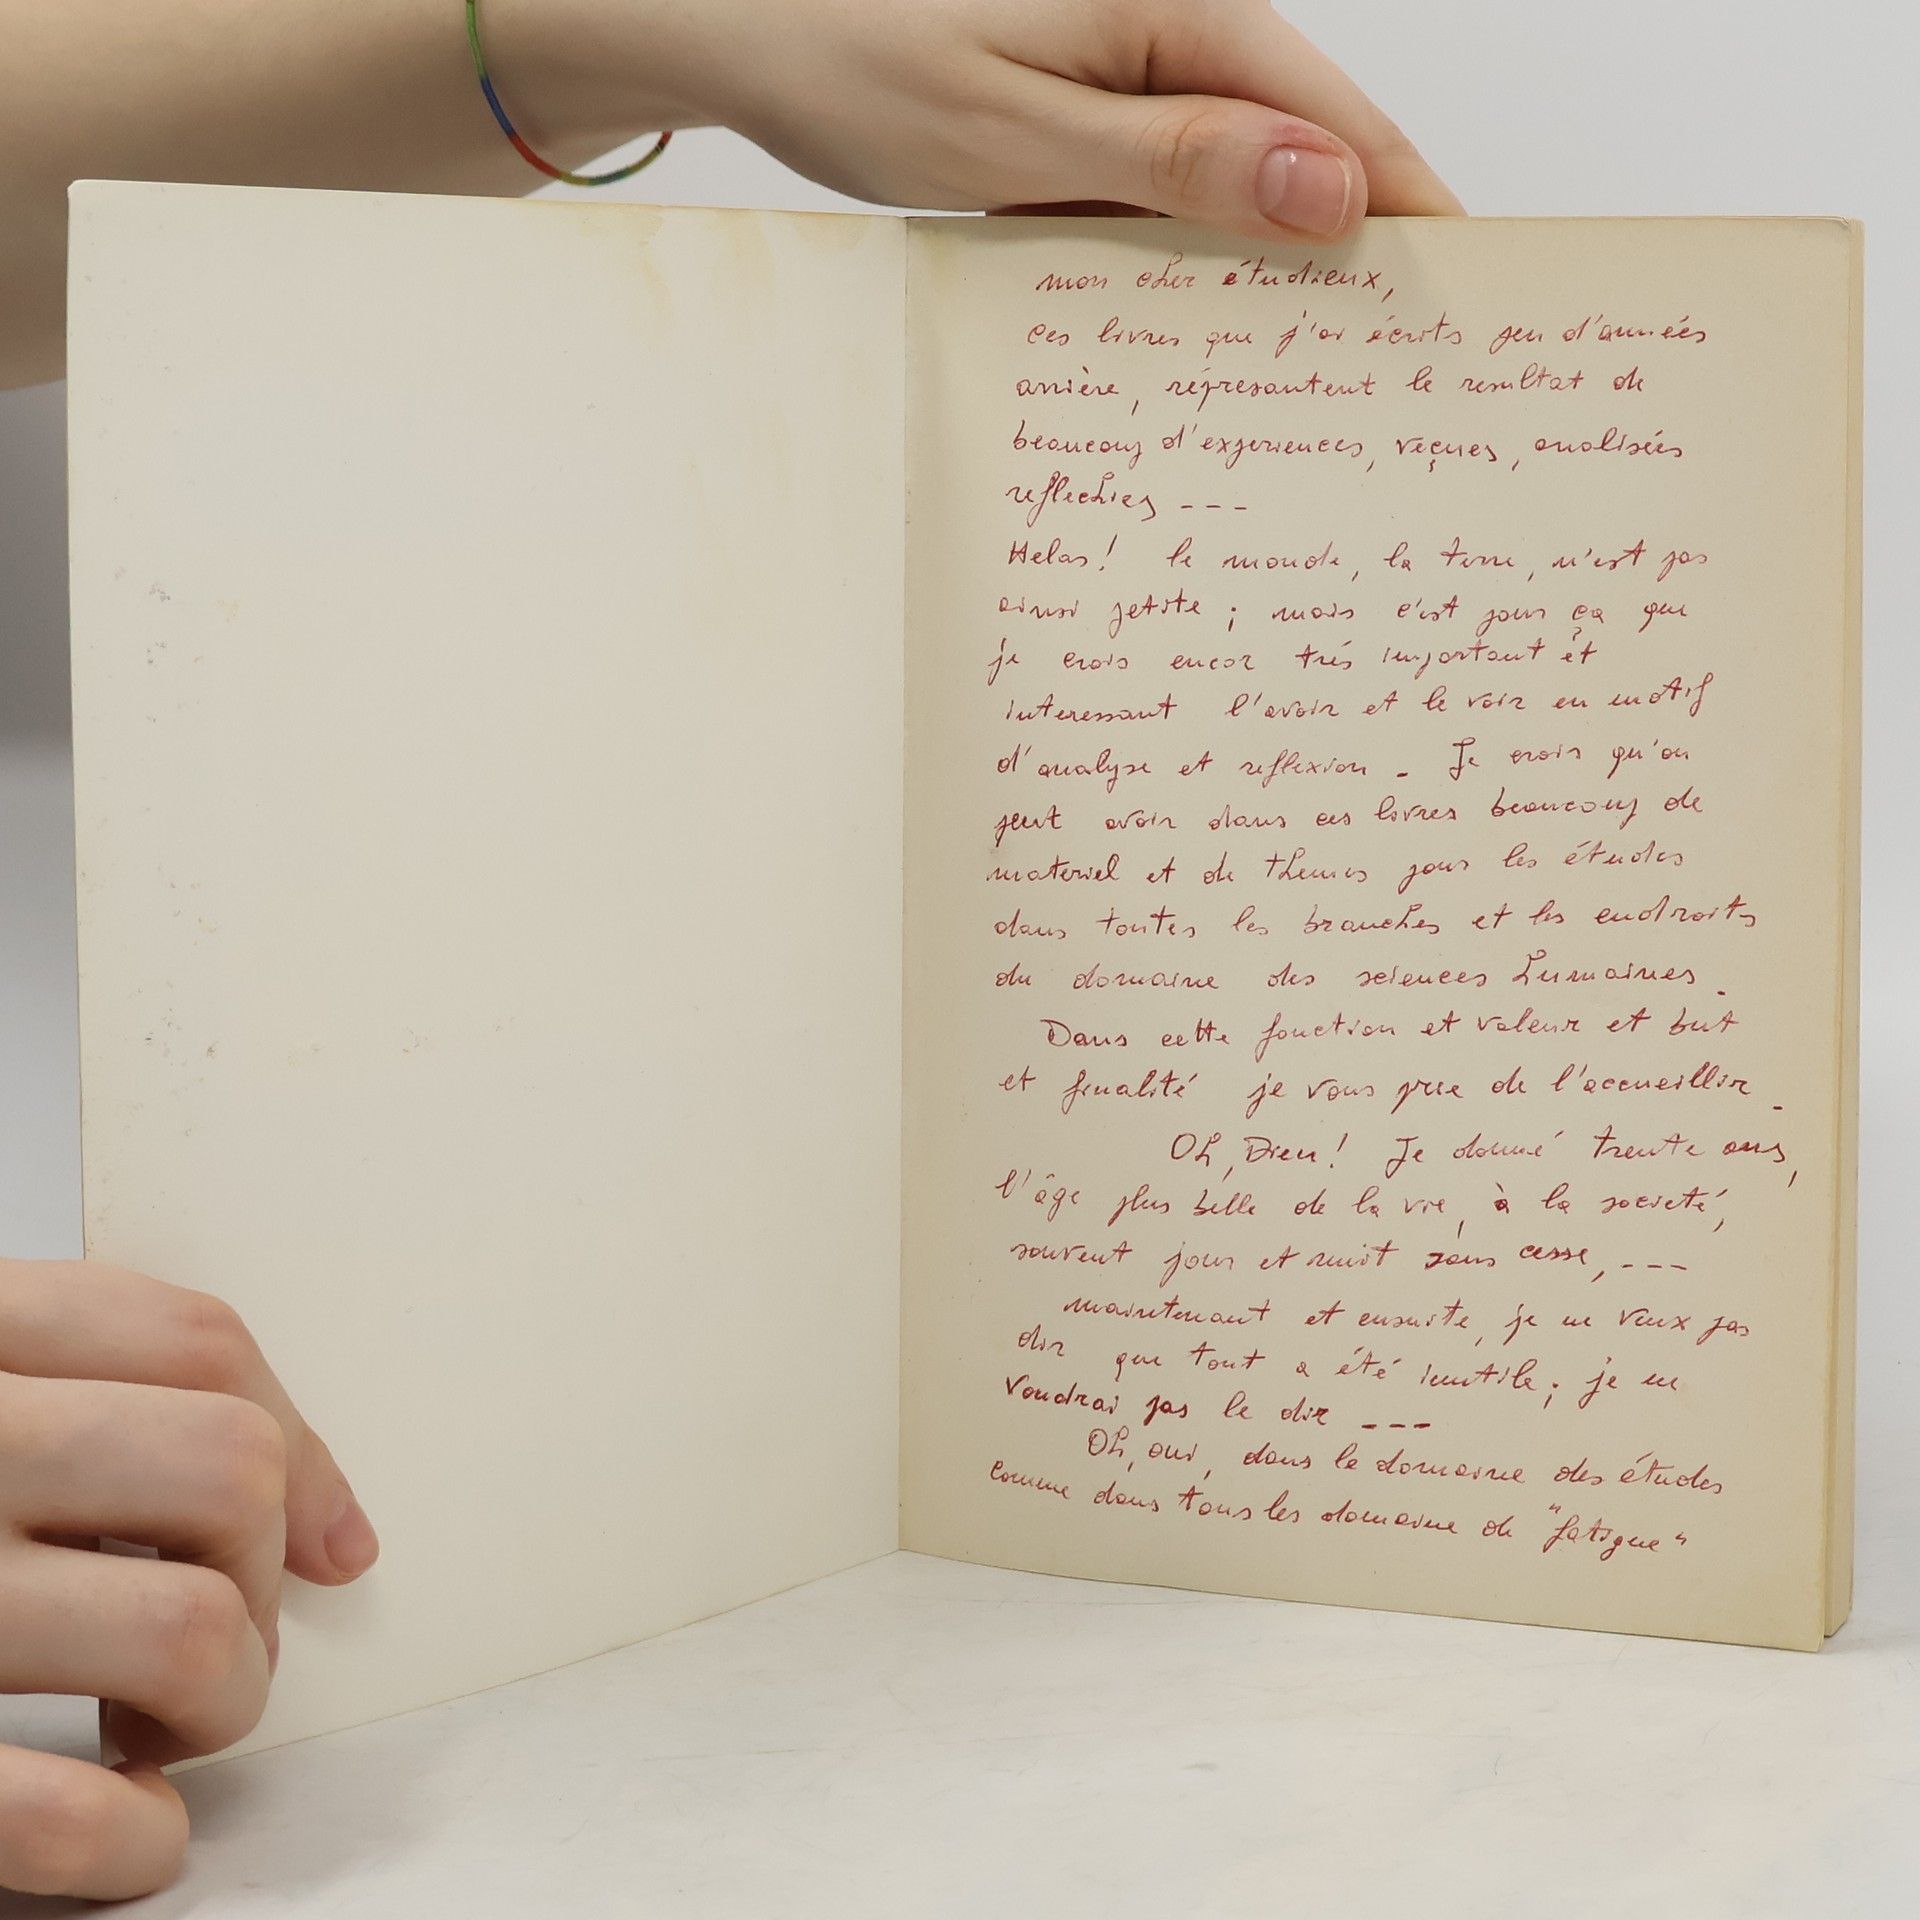 mon cher étudieux,
ces livres que j'ai écrits peu d'années
arrière, répresantent le resultat de
beaucoup d'experiences, veçues, analisées
reflechies ---
Helas! le monde, la terre, n'est pas
ainsi petite ; mais c'est pour ça que
je crois encor trés important et
interessant l'avoir et le voir en motif
d'analyse et reflexion - Je crois qu'on
peut avoir dans ces livres beaucoup de
materiel et de themes pour les études
dans toutes les branches et les endroits
du domaine des sciences humaines -
Dans cette fonction et valeur et but
et finalité je vous prie de l'accueillir -
Oh, Dieu! Je donné trente ans,
l'âge plus belle de la vie, à la societé,
souvent jour et nuit sans cesse, ---
maintenant et ensuite, je ne veux pas
dir que tout a été inutile; je ne
voudrai pas le dir ---
Oh, oui, dans le domaine des études
comme dans tous les domaine de "fatigue"